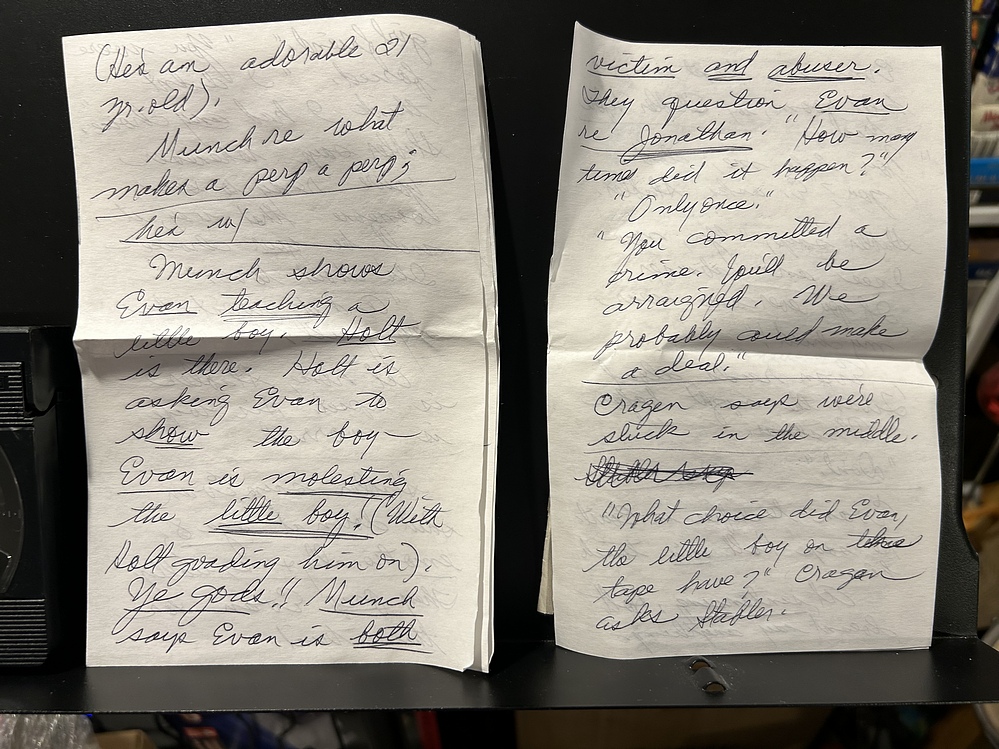 (He's an adorable 21
yr. old).
Munch re what
makes a perp a perp;
he's w/
Munch shows
Evan teaching a
little boy. Holt
is there. Holt is
asking Evan to
show the boy—
Evan is molesting
the little boy! (With
Holt goading him on).
Ye gods!! Munch
says Evan is both
victim and abuser.
They question Evan
re Jonathan. "How many
times did it happen?"
"Only once."
"You committed a
crime. You'll be
arraigned. We
probably could make
a deal."
Cragen says we're
stuck in the middle.
"What choice did Evan,
the little boy on
tape have?" Cragen
asks Stabler.